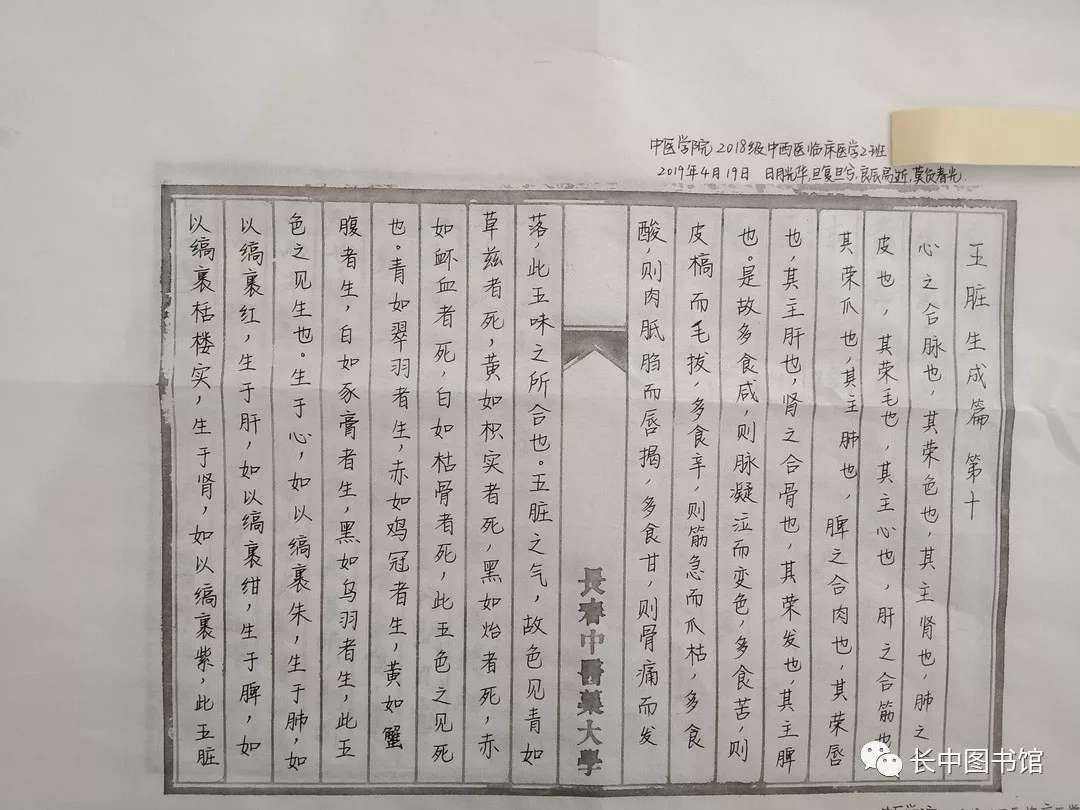 中医学院2018级中西医临床医学2班
2019年4月19日 日月光华,旦复旦兮,良辰局近,莫负春光.
五脏生成篇 第十
心之合脉也,其荣色也,其主肾也,肺之
皮也,其荣毛也,其主心也,肝之合筋也
其荣爪也,其主肺也,脾之合肉也,其荣唇
也,其主肝也,肾之合骨也,其荣发也,其主脾
也。是故多食咸,则脉凝泣而变色,多食苦,则
皮槁而毛拔,多食辛,则筋急而爪枯,多食
酸,则肉胝䐢而唇揭,多食甘,则骨痛而发
長春中醫藥大學
落,此五味之所合也。五脏之气,故色见青如
草兹者死,黄如枳实者死,黑如炲者死,赤
如衃血者死,白如枯骨者死,此五色之见死
也。青如翠羽者生,赤如鸡冠者生,黄如蟹
腹者生,白如豕膏者生,黑如乌羽者生,此五
色之见生也。生于心,如以缟裹朱,生于肺,如
以缟裹红,生于肝,如以缟裹绀,生于脾,如
以缟裹栝楼实,生于肾,如以缟裹紫,此五脏
长中图书馆